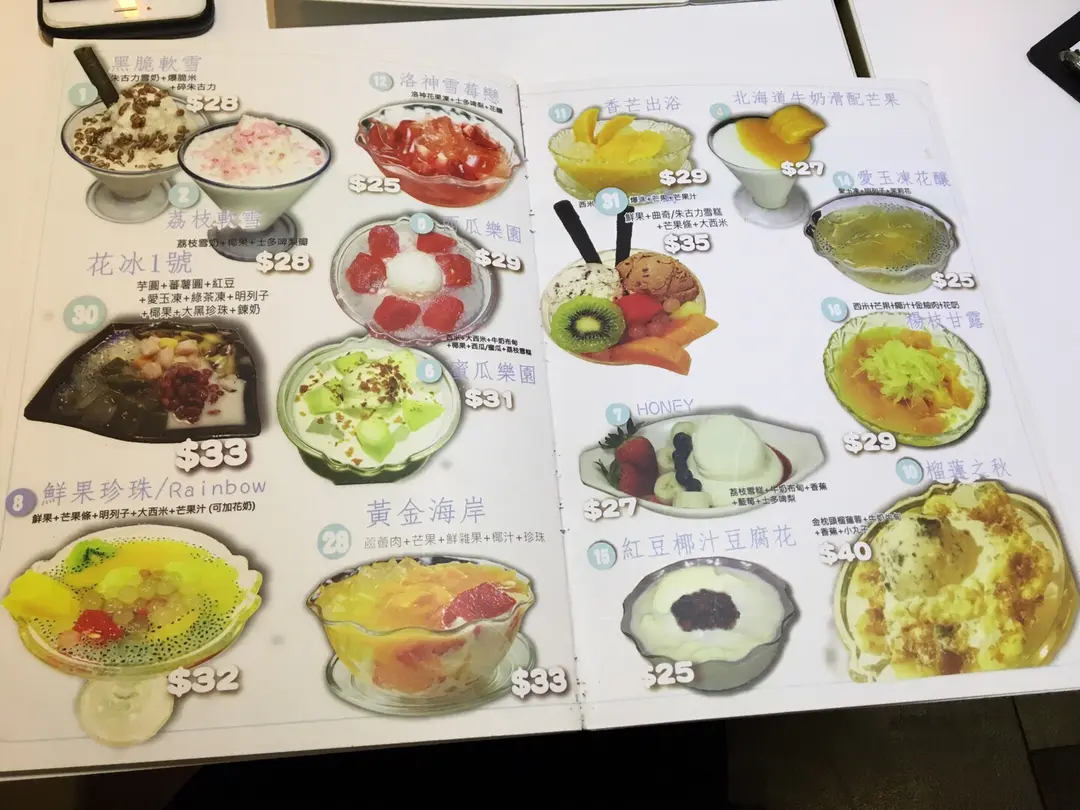 黑脆軟雪
朱古力雪奶+爆脆米
+碎朱古力
1
$28
2
荔枝軟雪
荔枝雪奶+椰果+士多啤梨瓣
$28
12
洛神雪莓戀
洛神花果凍+士多啤梨+花釀
$25
花冰1號
芋圓+蕃薯圓+紅豆
+愛玉凍+綠茶凍+明列子
+椰果+大黑珍珠+鍊奶
30
$33
西瓜樂園
$29
西米+大西米+牛奶布甸
+椰果+西瓜/蜜瓜+荔枝雪糕
6
蜜瓜樂園
$31
8
鮮果珍珠/Rainbow
鮮果+芒果條+明列子+大西米+芒果汁(可加花奶)
$32
黃金海岸
28
蘆薈肉+芒果+鮮雜果+椰汁+珍珠
$33
11
香芒出浴
$29
西米
爆珠+芒果+芒果汁
北海道牛奶滑配芒果
$27
14
愛玉凍花釀
愛玉凍+明列子+茉莉花
$25
31
鮮果+曲奇/朱古力雪糕
+芒果條+大西米
$35
18
西米+芒果+椰汁+金柚肉+花奶
楊枝甘露
$29
7
HONEY
荔枝雪糕+牛奶布甸+香蕉
+藍莓+士多啤梨
$27
15
紅豆椰汁豆腐花
$25
10
榴蓮之秋
金枕頭榴蓮蓉+牛奶布甸
+香蕉+小丸子
$40